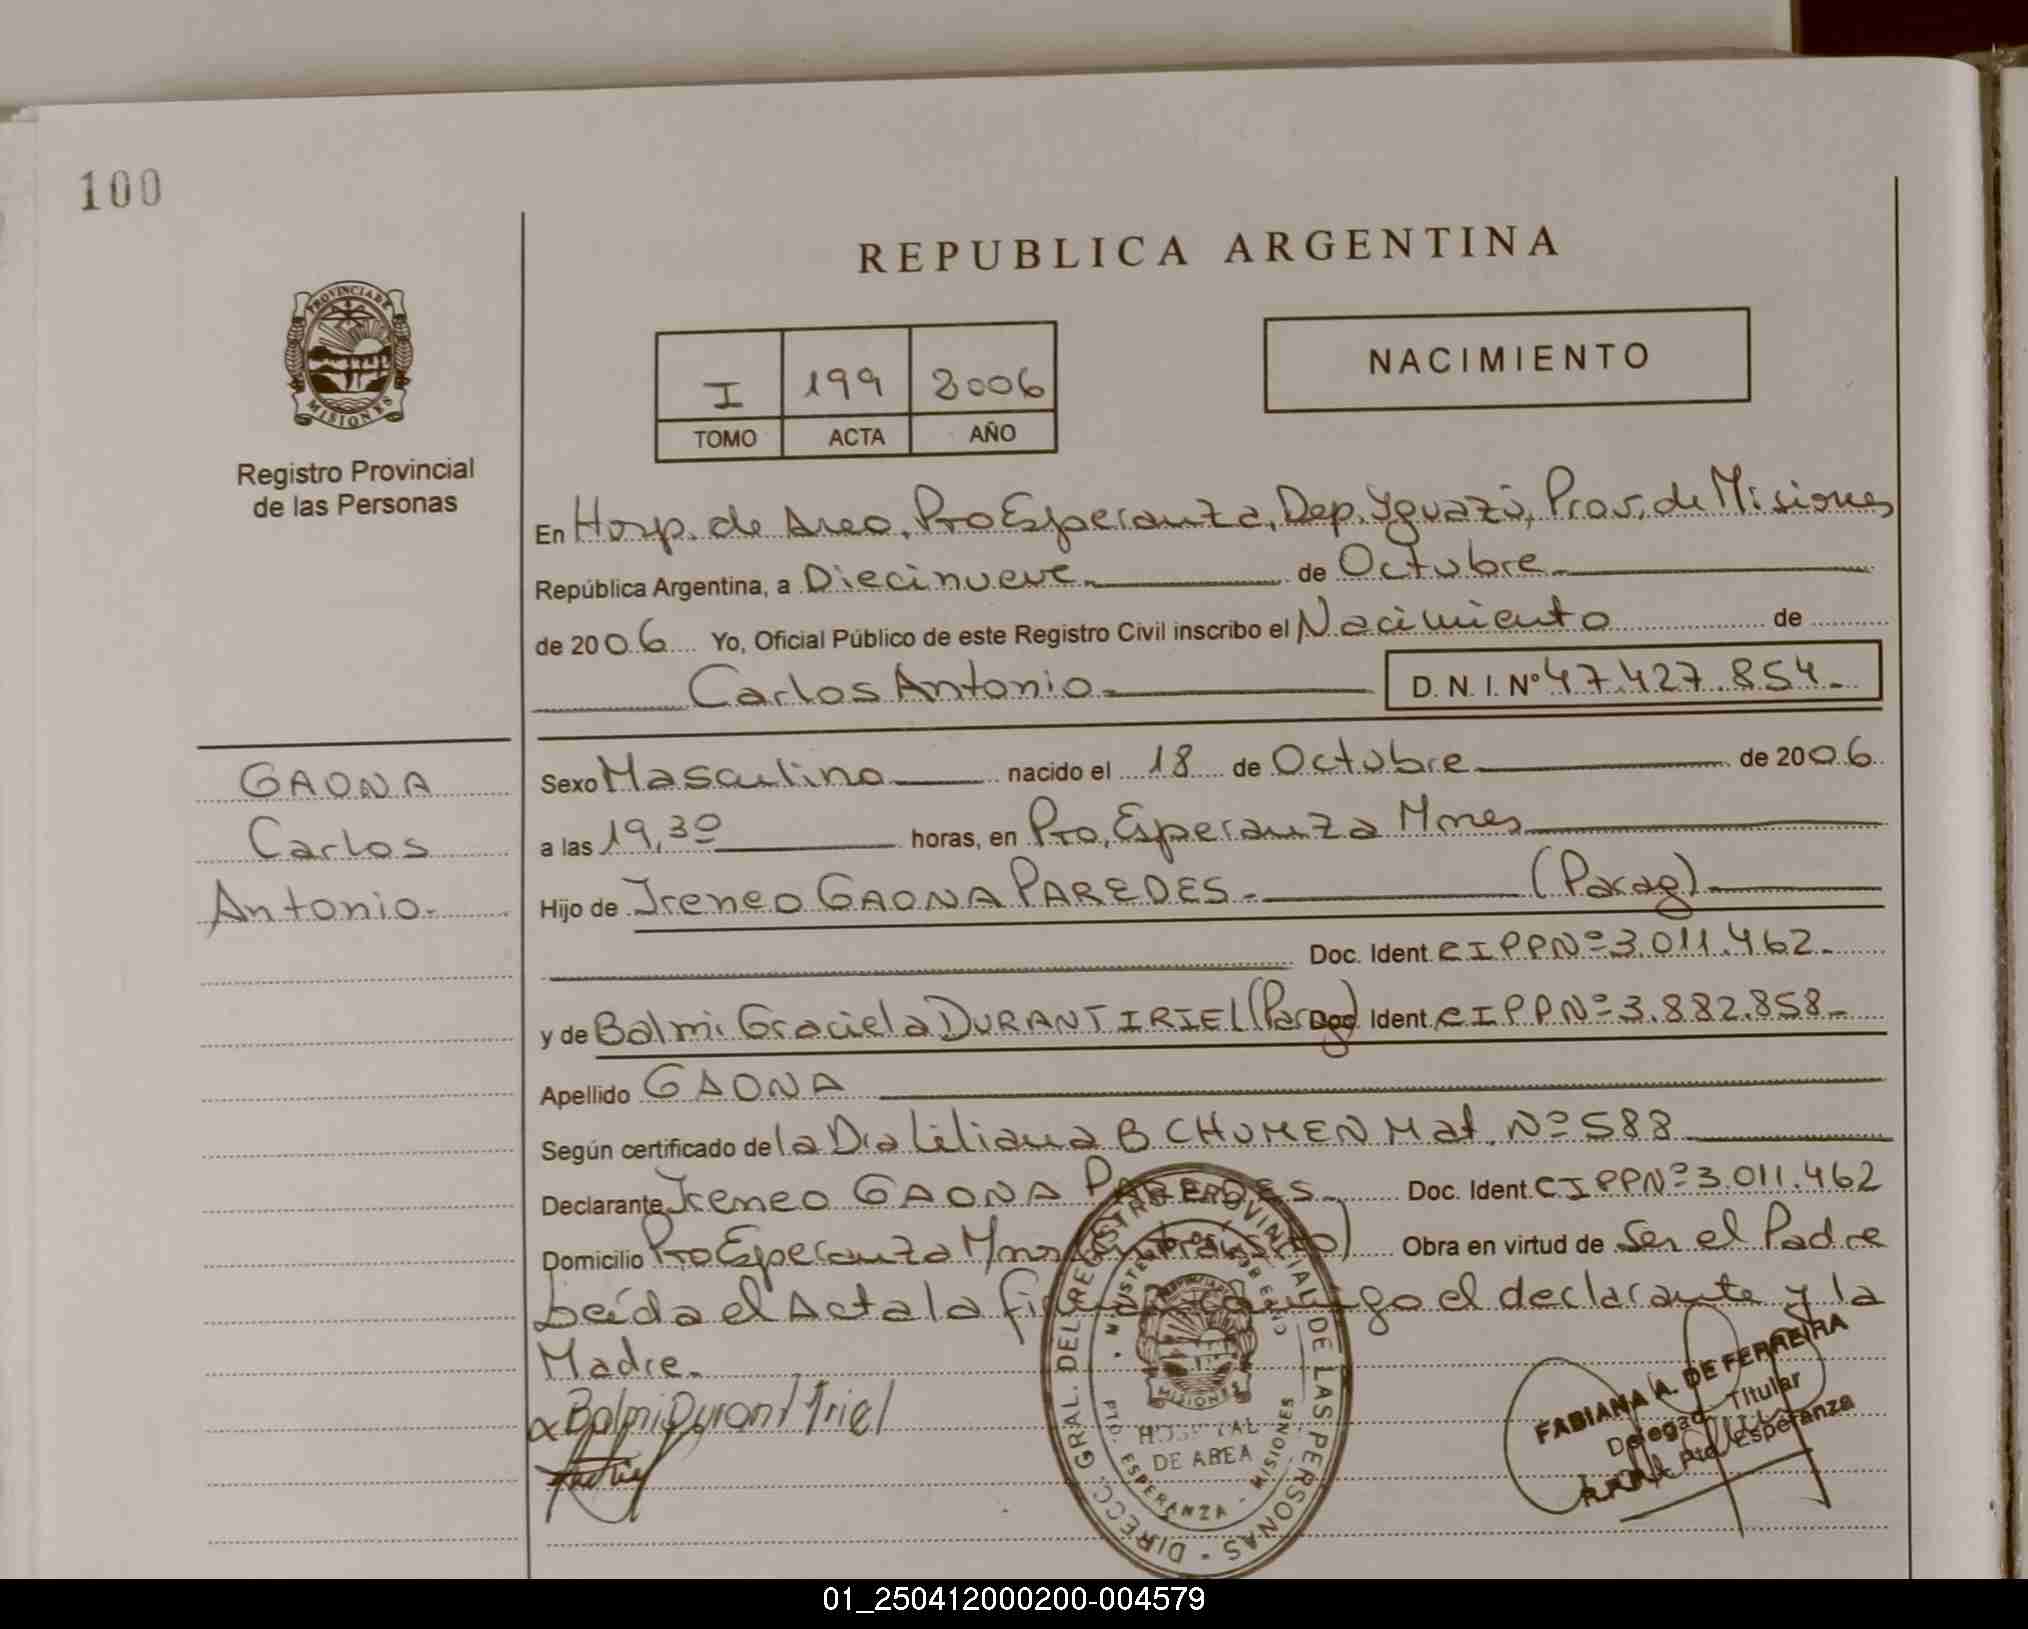 100
REPUBLICA ARGENTINA
PROVINCIA DE
MISIONES
Registro Provincial
de las Personas
I 199 2006
TOMO ACTA AÑO
NACIMIENTO
En Hosp. de Area, Pto Esperanza, Dep. Yguazú, Prov. de Misiones
República Argentina, a Diecinueve de Octubre
de 2006 Yo, Oficial Público de este Registro Civil inscribo el Nacimiento de
Carlos Antonio D. N. I. Nº 47.427.854
GAONA
Carlos
Antonio.
Sexo Masculino nacido el 18 de Octubre de 2006
a las 19,30 horas, en Pto, Esperanza Mnes
Hijo de Ireneo GAONA PAREDES. (Parag)
Doc. Ident. CIPPNº 3.011.462
y de Balmi Graciela DURANT IRIEL (Parag) Doc. Ident. CIPPNº 3.882.858
Apellido GAONA
Según certificado de la Dra Liliana B CHUMEN Mat. Nº 588
Declarante Ireneo GAONA PAREDES Doc. Ident. CIPPNº 3.011.462
Domicilio Pto Esperanza Mnes Obra en virtud de Ser el Padre
Leída el Acta la firman conmigo el declarante y la
Madre.
Balmi Durant Iriel
DIRECC. GRAL. DEL REGISTRO PROVINCIAL DE LAS PERSONAS
MISIONES
HOSPITAL
DE AREA
PTO. ESPERANZA - MISIONES
FABIANA A. DE FERREIRA
Delegada Titular
Pto. Esperanza
01_250412000200-004579